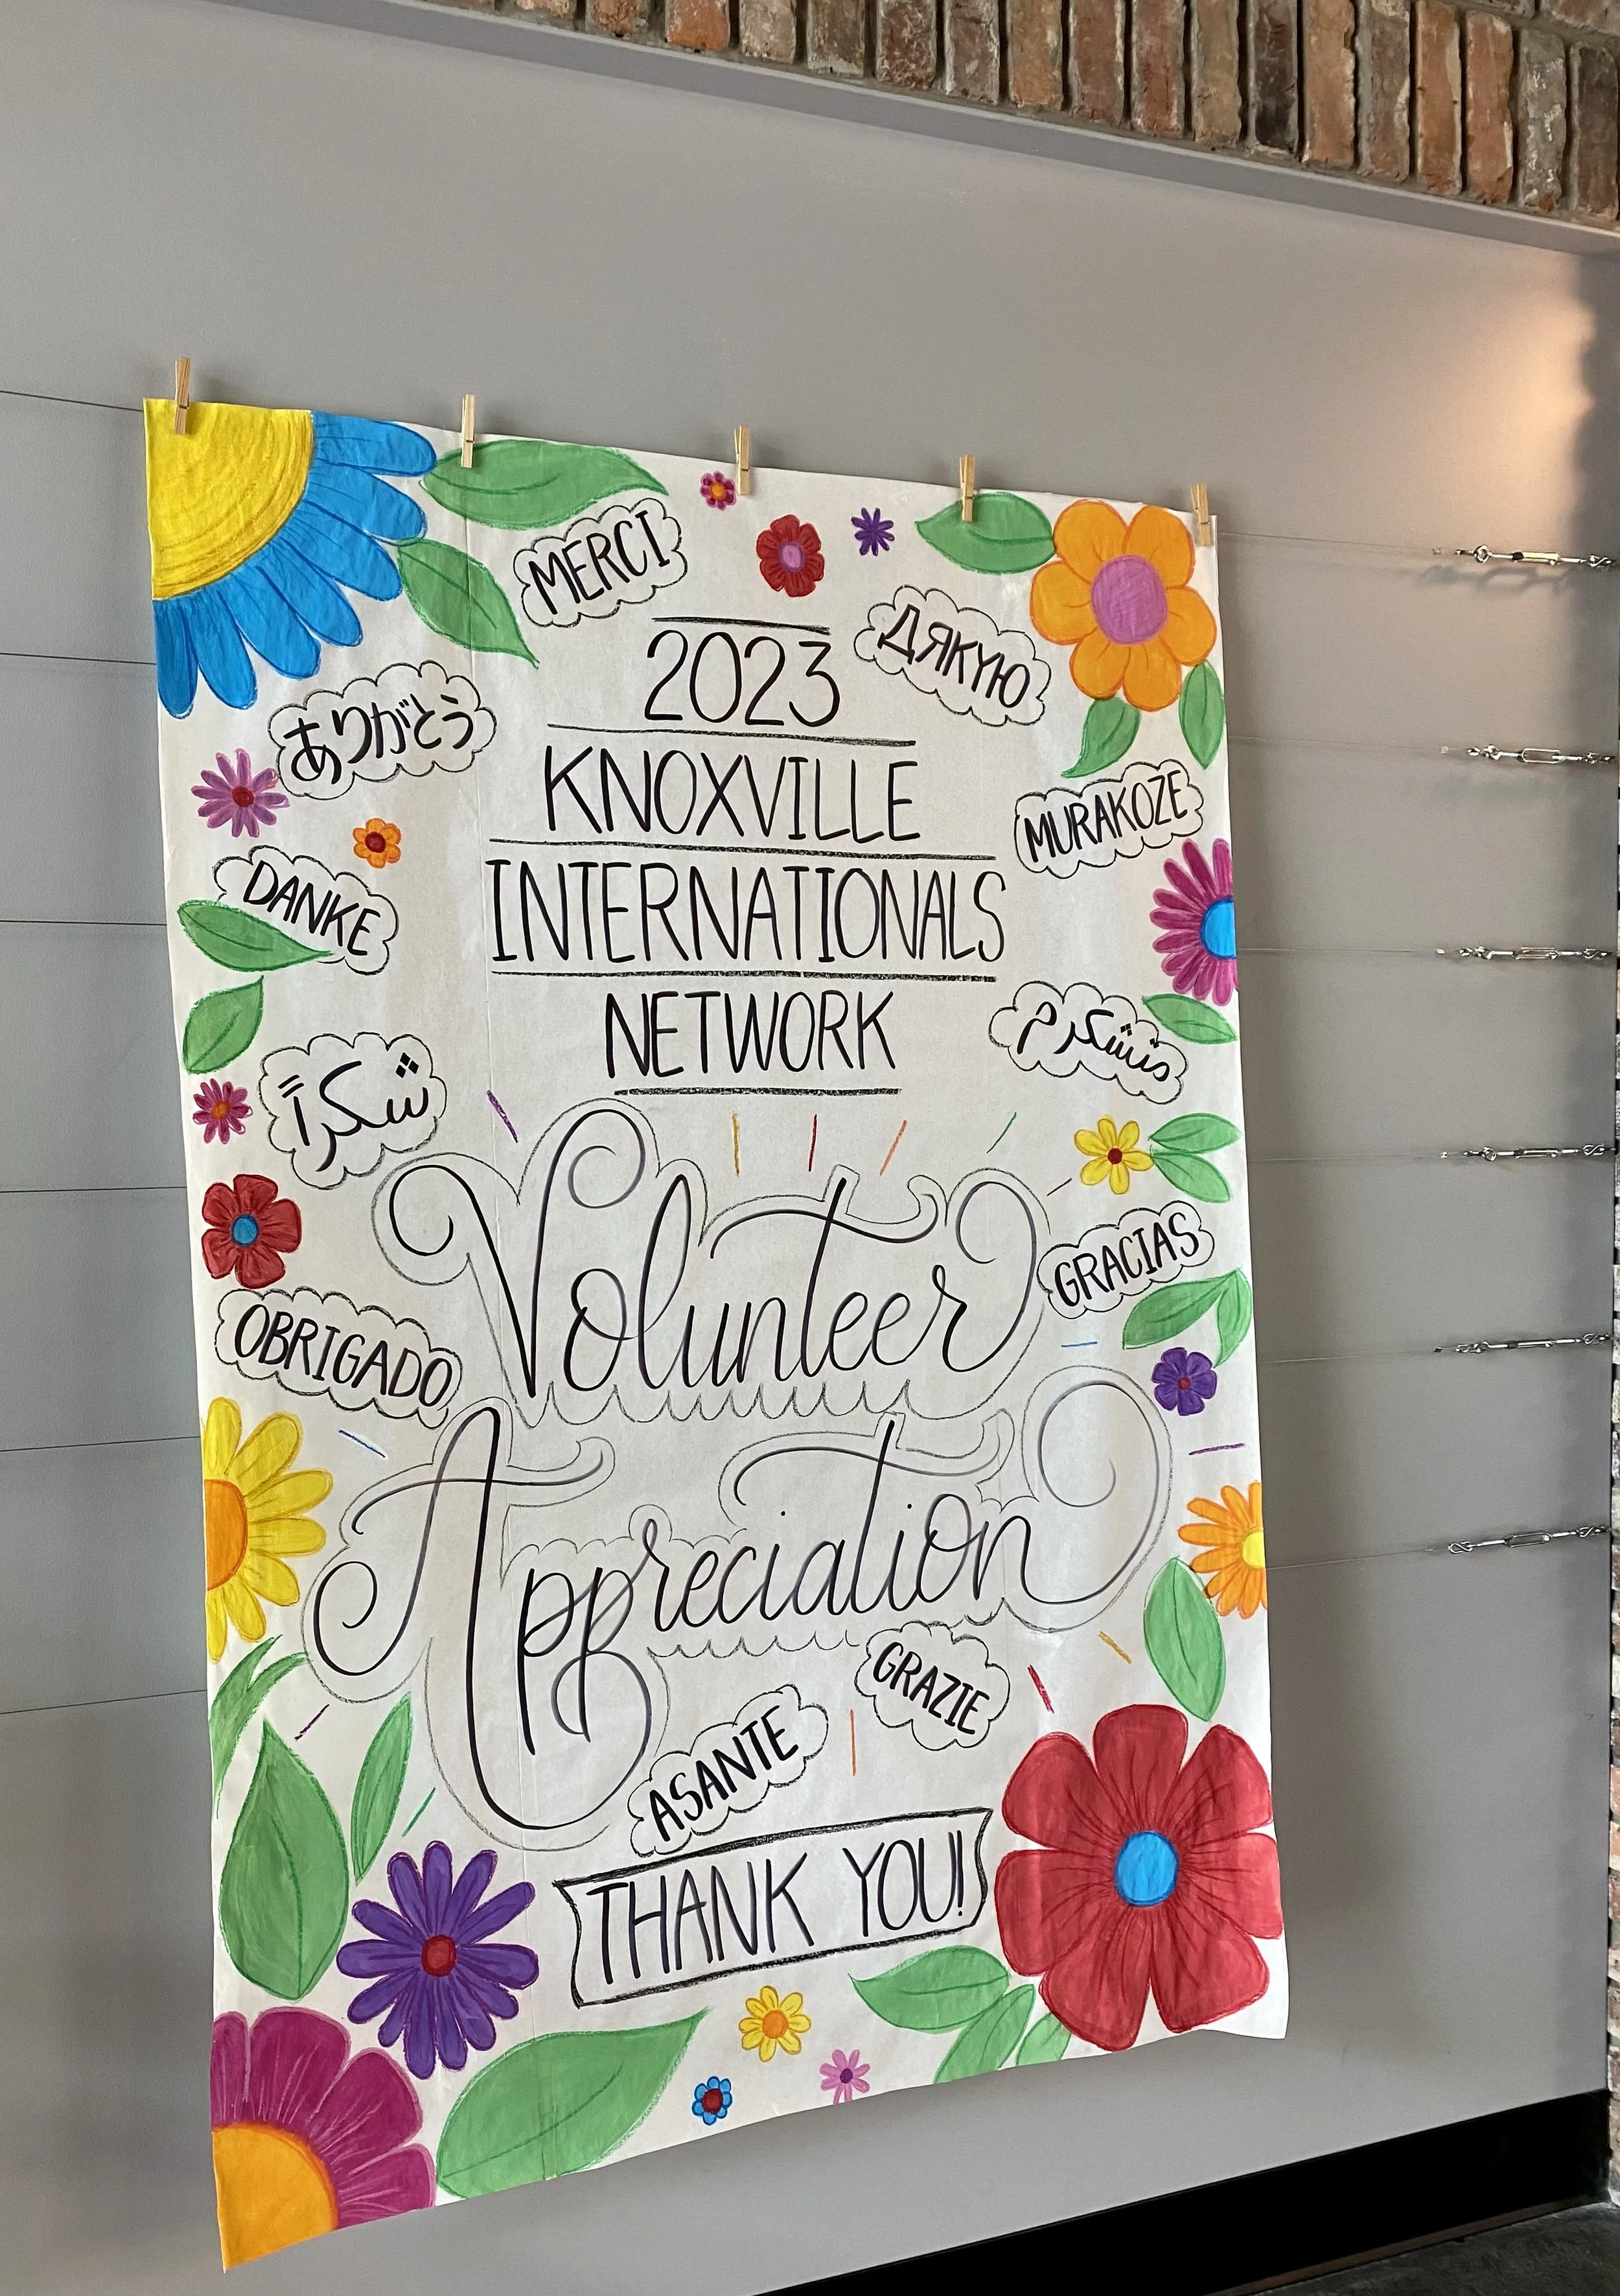 MERCI
ДЯКУЮ
2023
ありがとう
KNOXVILLE
MURAKOZE
DANKE
INTERNATIONALS
NETWORK
متشكرم
شكراً
Volunteer
GRACIAS
OBRIGADO
Appreciation
GRAZIE
ASANTE
THANK YOU!